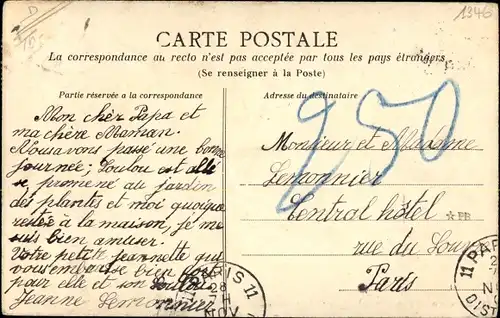 1346
D
CARTE POSTALE
La correspondance au recto n'est pas acceptée par tous les pays étrangers
(Se renseigner à la Poste)
Partie réservée a la correspondance
Mon chèr Papa et
ma chère Maman.
Nous avons passé une bonne
journée; Loulou est allé
se promené au jardin
des plantes et moi quoique
restée à la maison, je me
suis bien amuser.
Votre petite jeannette qui
vous embrasse bien
pour elle et son Loulou
Jeanne Lemonnier
Adresse du destinataire
250
Monsieur et Madame
Lemonnier
Central hôtel
rue du
Paris
PARIS 11
28
NOV
11 PARIS